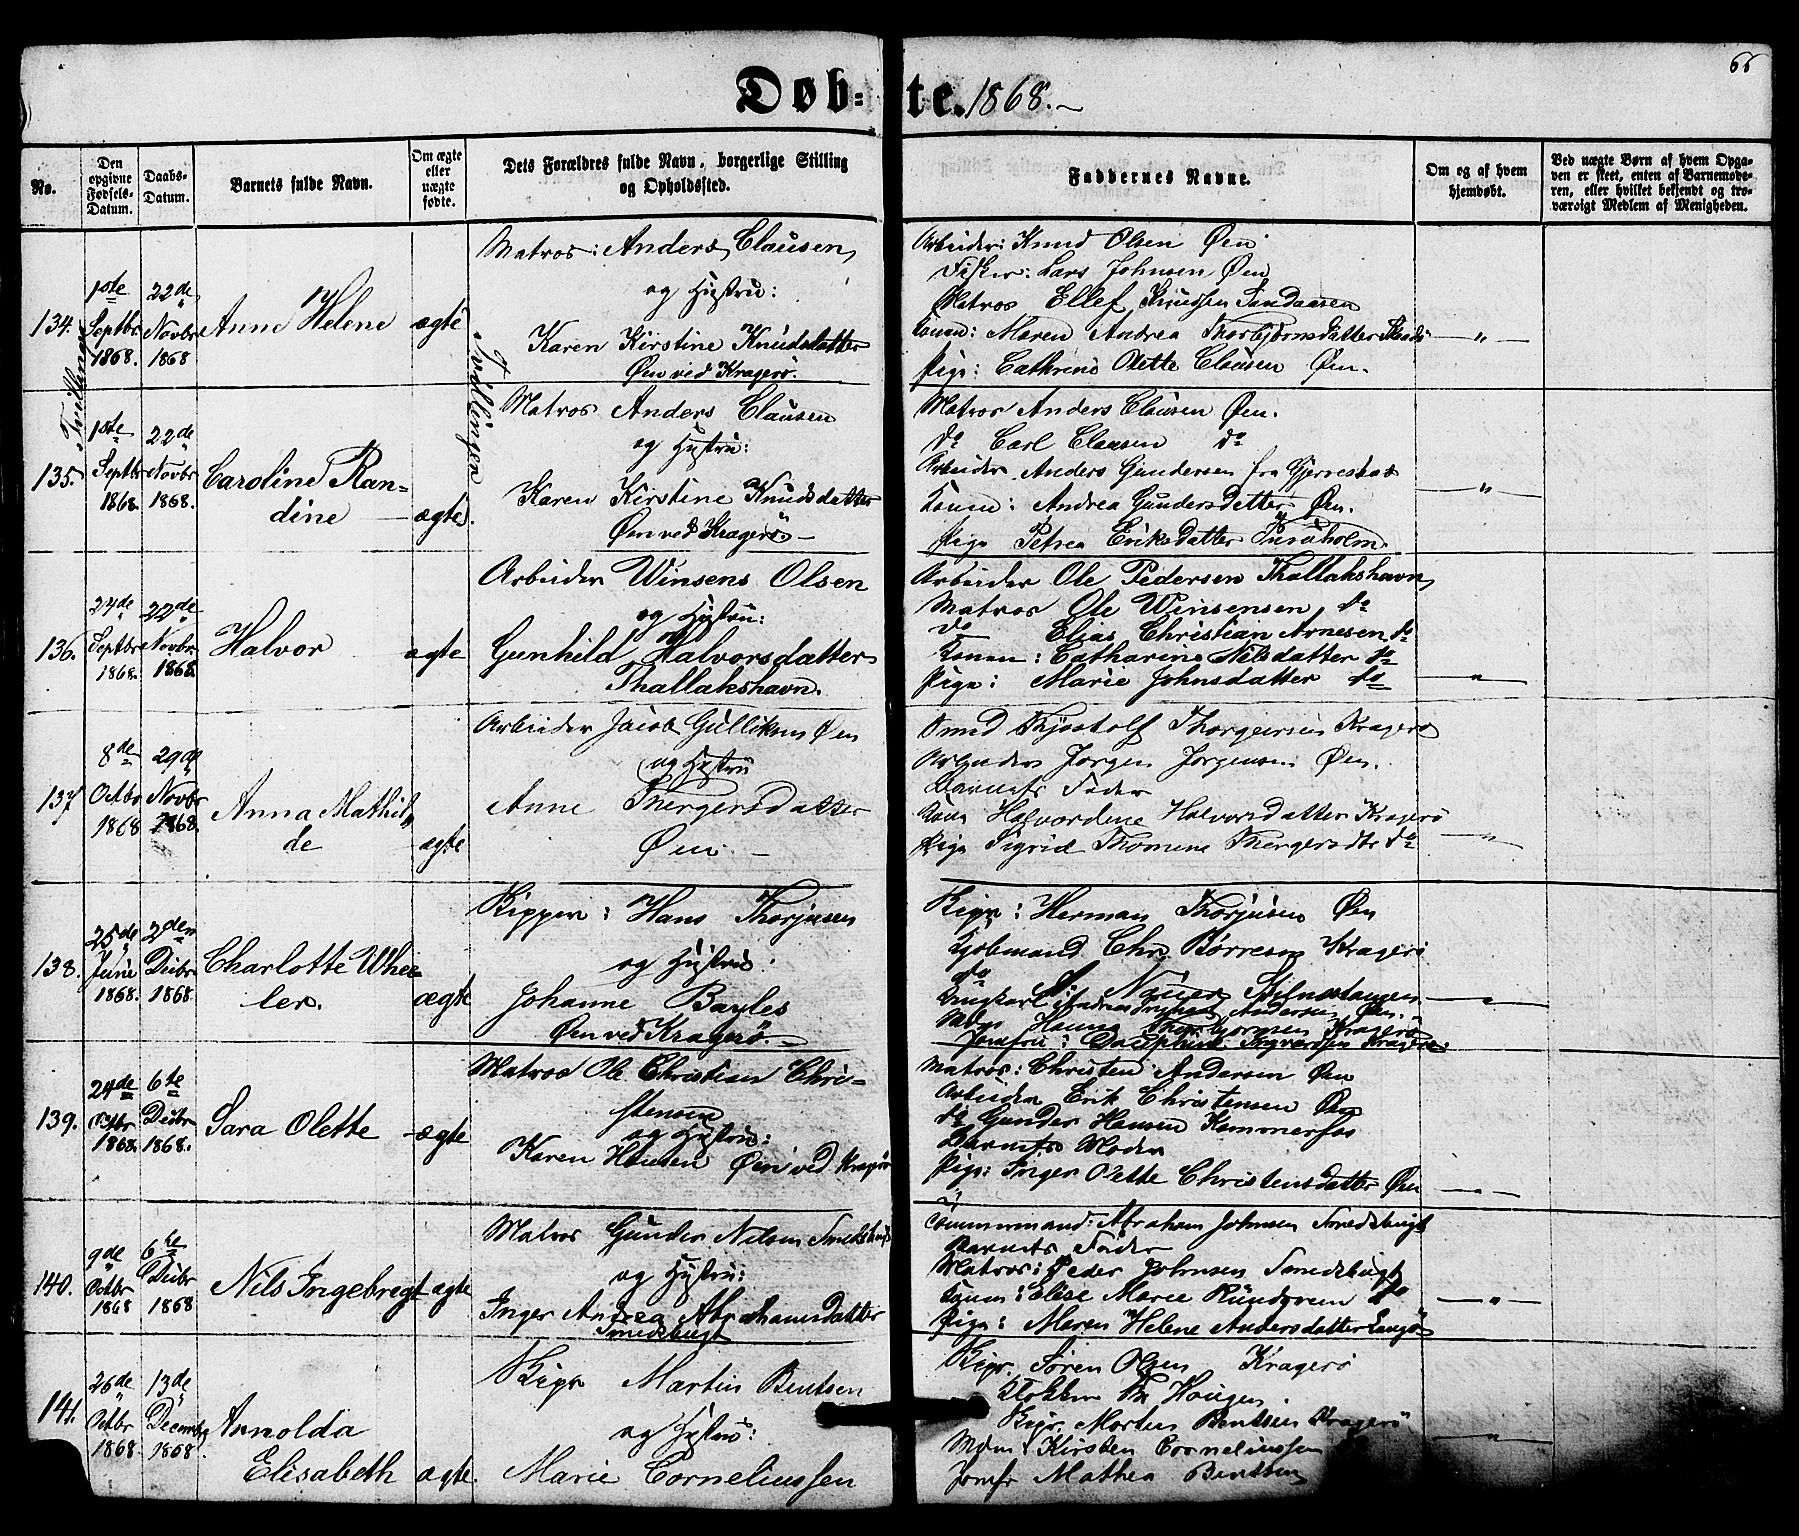 66
Døb- te. 1868.
No.
Den opgivne Fødsels-Datum.
Daabs-Datum.
Barnets fulde Navn.
Om ægte eller uægte fødte.
Dets Forældres fulde Navn, borgerlige Stilling og Opholdssted.
Faddernes Navne.
Om og af hvem hjemdøbt.
Ved uægte Børn af hvem Opga-
ven er skeet, enten af Barnemode-
ren, eller hvilket bekjendt og tro-
værdigt Medlem af Menigheden.
134. 1ste Septbr 1868. 22de Novbr 1868
Anne Helene ægte
Tvillinger
Matros: Anders Clausen
og Hustru:
Karen Kirstine Knudsdatter
Øen ved Kragerø.
Arbeider: Knud Olsen Øen
Fisker: Lars Johnsen Øen
Matros Ellef Knudsen Sandaasen
Konen: Maren Andrea Thorbjørnsdatter
Pige: Cathrine Olette Clausen Øen.
135. 1ste Septbr 1868. 22de Novbr 1868.
Caroline Ran-
dine ægte.
Tvillinger
Matros Anders Clausen
og Hustru:
Karen Kirstine Knudsdatter
Øen ved Kragerø
Matros Anders Clausen Øen.
do Carl Clausen do
Arbeider Anders Gundersen fra
Konen: Andrea Gundersdatter Øen.
Pige Petrea Eriksdatter
136. 24de Septbr 1868. 22de Novbr 1868.
Halvor ægte
Arbeider Winsens Olsen
og Hustru:
Gunhild Halvorsdatter
Thallakshavn.
Arbeider Ole Pedersen Thallakshavn
Matros Ole Winsensen do
do Elias Christian Arnesen do
Konen: Catharine Nilsdatter do
Pige: Marie Johnsdatter do
137 8de Octbr 1868 29de Novbr 1868.
Anna Mathil-
de ægte
Arbeider Jacob Gulliksen Øen
og Hustru
Anne Thergersdatter
Øen
Smed Thjostolf Thorgersen Kragerø
Arbeider Jørgen Jørgensen Øen.
Barnets Fader
Kone Halvordine Halvorsdatter Kragerø
Pige Sigrid Thomine Thergersdtr do
138. 25de Juni 1868. 2den Decbr 1868.
Charlotte Whee-
ler. ægte
Skipper: Hans Thorjusen
og Hustru:
Johanne Bayles
Øen ved Kragerø.
Skipr: Herman Thorjusen Øen
Kjøbmand Chr. Børresen Kragerø
do
Ungkarl Andersen Øen.
Kragerø
Jomfru: Kragerø
139. 24de Octbr 1868. 6te Decbr 1868.
Sara Olette ægte
Matros Ole Christian Chri-
stensen
og Hustru:
Karen Hansen Øen ved Kragerø
Matros: Christen Andersen Øen
Arbeider Erik Christensen Øen
do Gunder Hansen Kammerfos
Barnets Moder
Pige: Inger Olette Christensdatter Øen
140. 9de Octbr 1868 6te Decbr 1868
Nils Ingebregt ægte
Matros Gunder Nilsen Smedsbugt
og Hustru:
Inger Andrea Abrahamsdatter
Smedsbugt
Tømmermand: Abraham Johnsen Smedsbugt
Barnets Fader
Matros: Peder Johnsen Smedsbugt
Konen: Elise Marie do
Pige: Maren Helene Andersdatter Langø
141. 26de Octbr 1868 13de Decembr 1868.
Arnolda
Elisabeth ægte.
Skipr Martin Bentsen
og Hustru:
Marie Corneliussen
Skipr. Søren Olsen Kragerø
Klokker Haugen
Skipr. Morten Bentsen Kragerø
Mdm Kirsten Corneliussen
Jomfr Mathea Bentsen